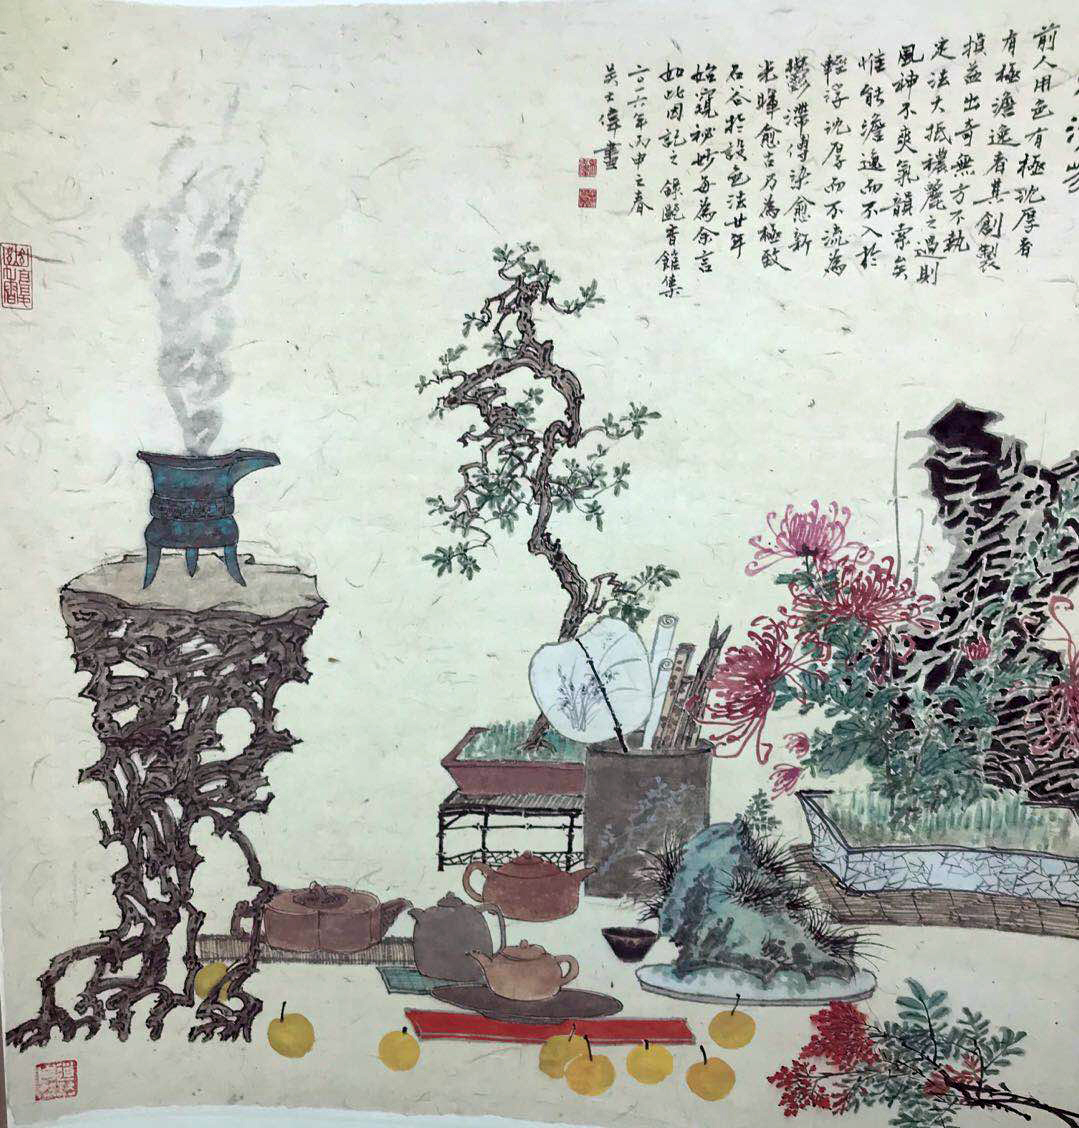 前人用色有極沈厚者
有極澹逸者其創製
損益出奇無方不執
定法大抵穠麗之過則
風神不爽氣韻索矣
惟能澹逸而不入於
輕浮沈厚而不流為
鬱滯傅染愈新
光暉愈古乃為極致
石谷於設色法廿年
始窺秘妙每為余言
如此因記之 錄甌香館集
二〇一六年丙申之春
吳士偉畫